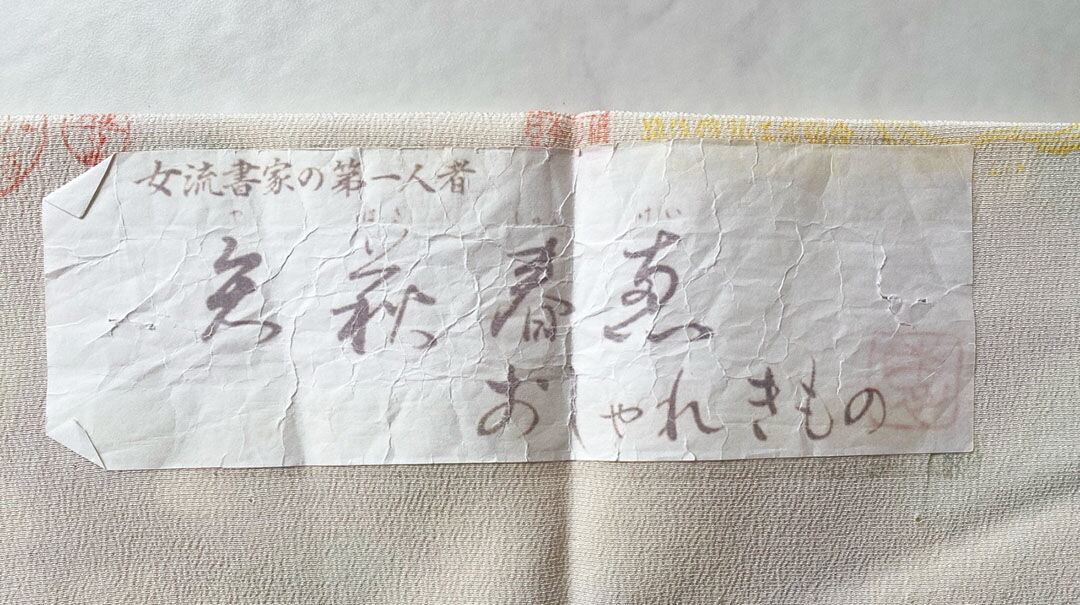 女流書家の第一人者
や はぎ しゅん けい
矢萩春恵
おしゃれきもの